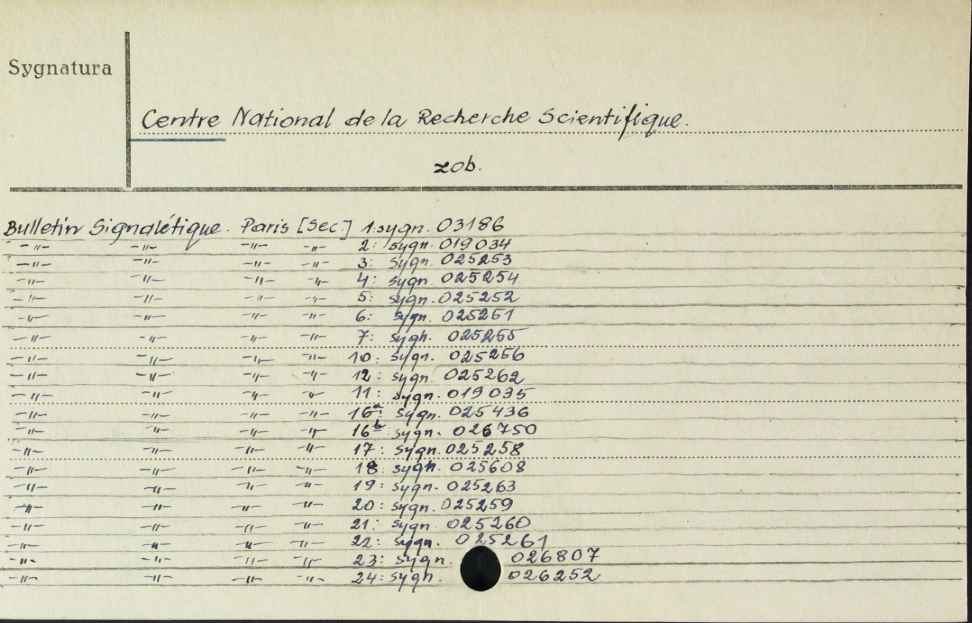 Sygnatura
Centre National de la Recherche Scientifique.
zob.
Bulletin Signalétique. Paris [Sec.] 1. sygn. 03186
-"- -"- -"- -"- 2: sygn. 019034
-"- -"- -"- -"- 3: sygn. 025253
-"- -"- -"- -"- 4: sygn. 025254
-"- -"- -"- -"- 5: sygn. 025252
-"- -"- -"- -"- 6: sygn. 025251
-"- -"- -"- -"- 7: sygn. 025255
-"- -"- -"- -"- 10: sygn. 025256
-"- -"- -"- -"- 12: sygn 025262
-"- -"- -"- -"- 11: sygn. 019035
-"- -"- -"- -"- 16a: sygn. 025436
-"- -"- -"- -"- 16b: sygn. 026750
-"- -"- -"- -"- 17: sygn. 025258
-"- -"- -"- -"- 18: sygn. 025608
-"- -"- -"- -"- 19: sygn. 025263
-"- -"- -"- -"- 20: sygn. 025259
-"- -"- -"- -"- 21: sygn. 025260
-"- -"- -"- -"- 22: sygn. 025261
-"- -"- -"- -"- 23: sygn. 026807
-"- -"- -"- -"- 24: sygn. 026252